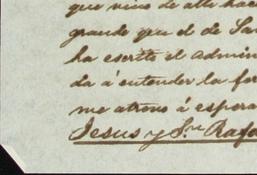 que vino de alla hac
grande que el de San
ha escrito el admin
da á entender la for
me atrevo á espera
Jesus y Sn Rafa